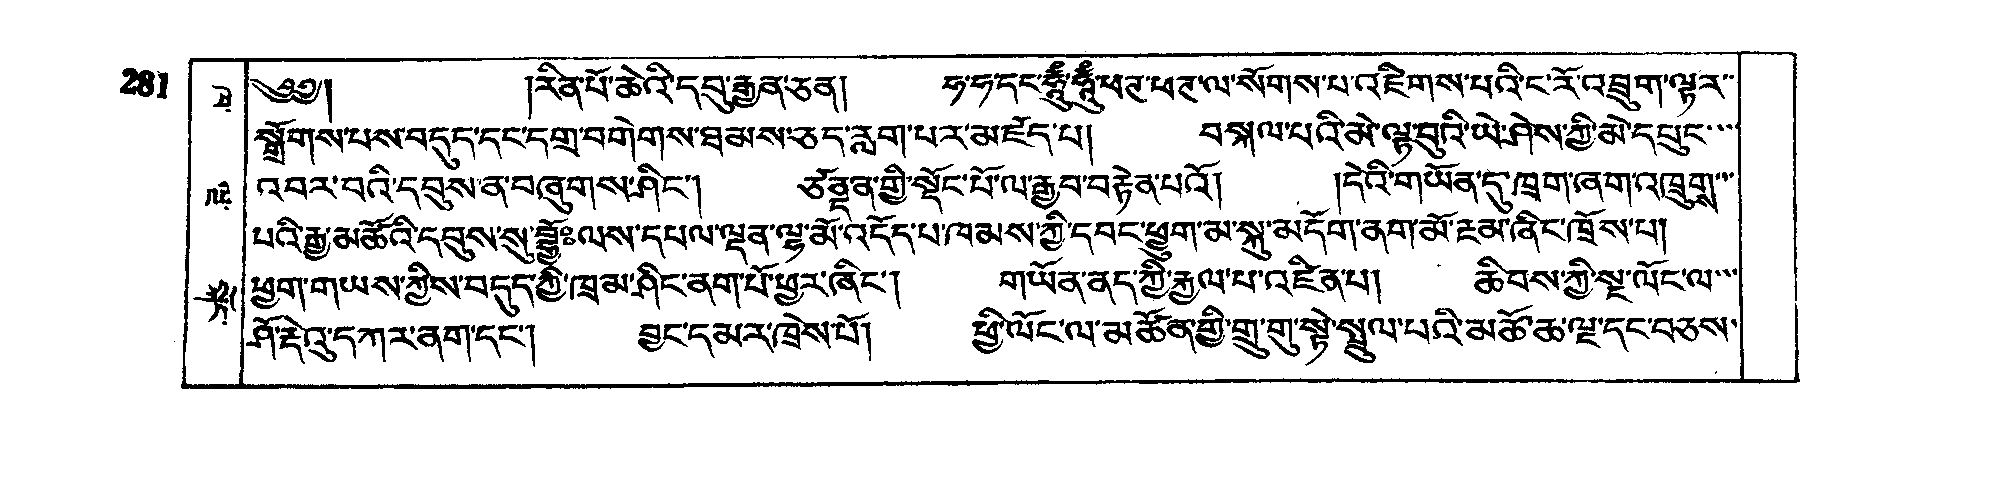 281
༄༅། །རིན་པོ་ཆེའི་དབུ་རྒྱན་ཅན། ཧ་ཧ་དང་ཧཱུྃ་ཧཱུྃ་ཕཊ་ཕཊ་ལ་སོགས་པ་འཇིགས་པའི་ང་རོ་འབྲུག་ལྟར་
སྒྲོགས་པས་བདུད་དང་དགྲ་བགེགས་ཐམས་ཅད་རླག་པར་མཛད་པ། བསྐལ་པའི་མེ་ལྟ་བུའི་ཡེ་ཤེས་ཀྱི་མེ་དཔུང་
འབར་བའི་དབུས་ན་བཞུགས་ཤིང་། ཙནྡན་གྱི་སྡོང་པོ་ལ་རྒྱབ་བརྟེན་པའོ། །དེའི་གཡོན་དུ་ཁྲག་ཞག་འཁྲུགས་
པའི་རྒྱ་མཚོའི་དབུས་སུ་བྷྱོཿལས་དཔལ་ལྡན་ལྷ་མོ་འདོད་པ་ཁམས་ཀྱི་དབང་ཕྱུག་མ་སྐུ་མདོག་ནག་མོ་རྔམ་ཞིང་ཁྲོས་པ།
ཕྱག་གཡས་ཀྱིས་བདུད་ཀྱི་ཁྲམ་ཤིང་ནག་པོ་ཕྱར་ཞིང་། གཡོན་ནད་ཀྱི་རྐྱལ་པ་འཛིན་པ། ཆིབས་ཀྱི་སྔ་ལོང་ལ་
ཤོ་རྡེའུ་དཀར་ནག་དང་། བྱང་དམར་ཁྲེས་པོ། ཕྱི་ལོང་ལ་མཚོན་གྱི་གྲུ་གུ་སྟེ་སྤྲུལ་པའི་མཚོ་ཆ་ལྔ་དང་བཅས་